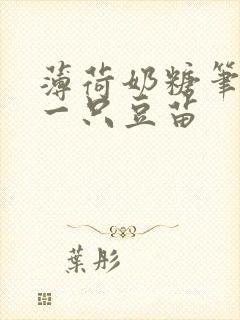 薄荷奶糖筆
一只豆苗
葉彤